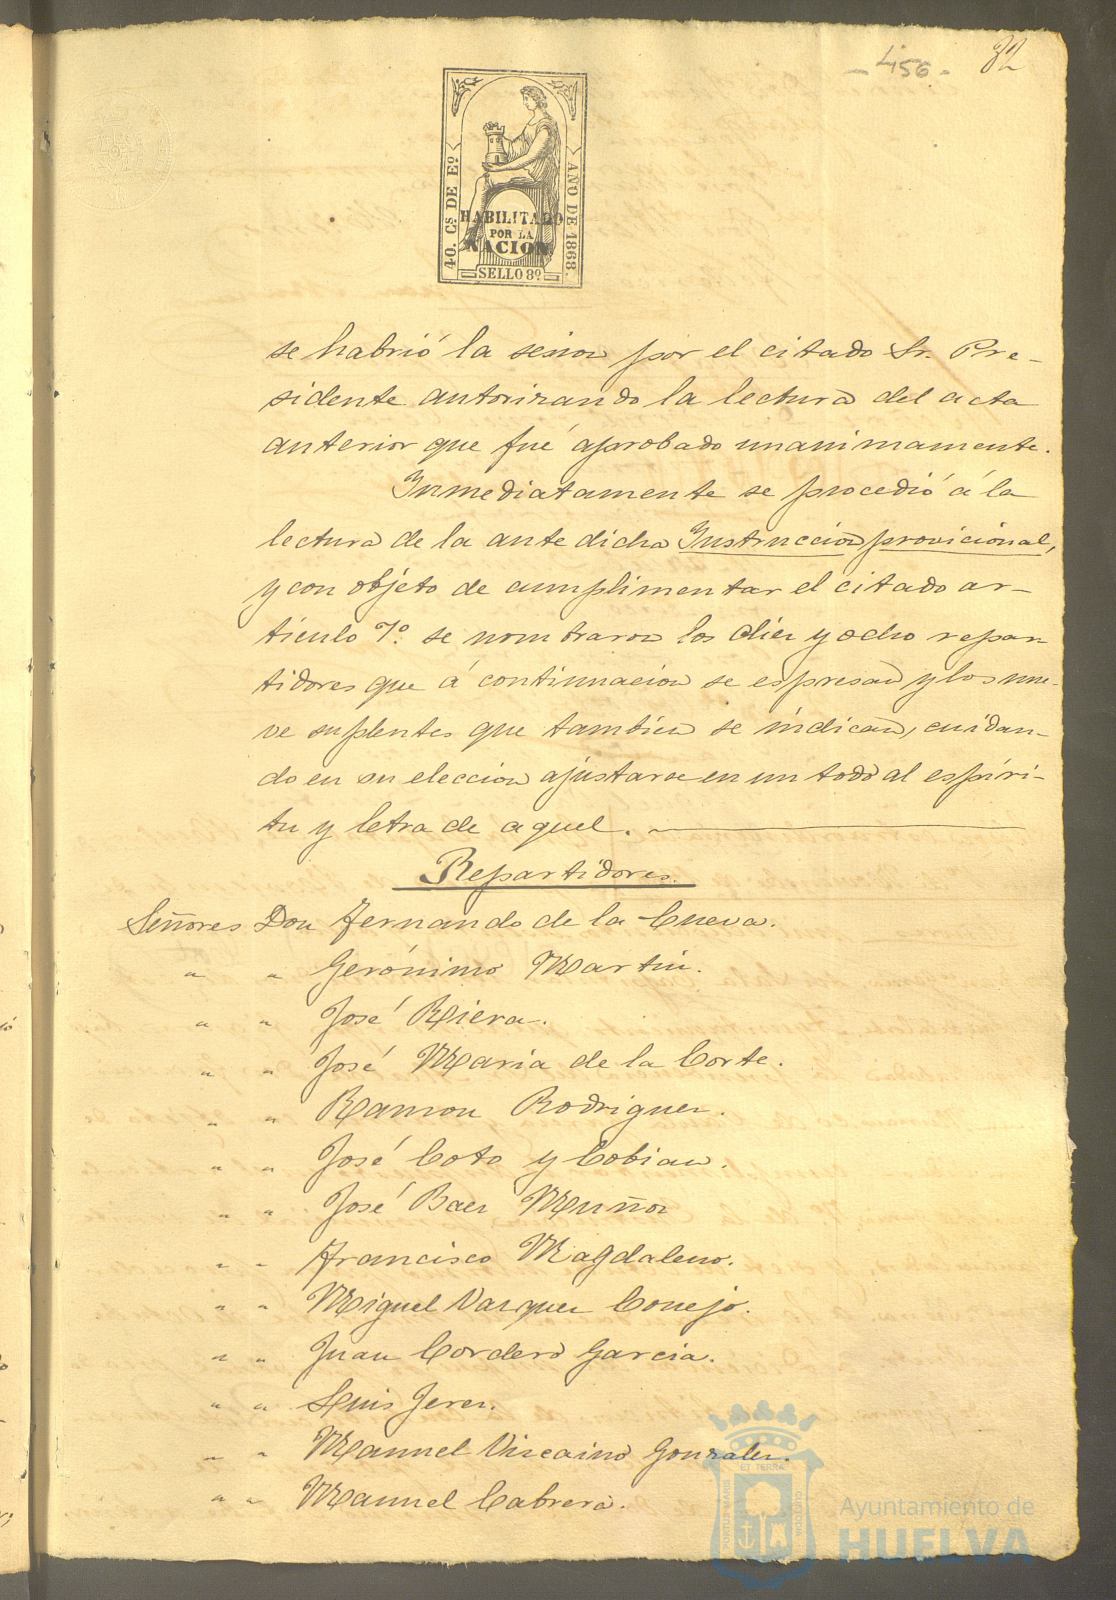 - 456 - 32
40. Cs DE Eo.
AÑO DE 1868.
HABILITADO
POR LA
NACION.
SELLO 8º
se habrió la sesion por el citado Sr. Pre-
sidente autorizando la lectura del acta
anterior que fué aprobado unanimamente.
Inmediatamente se procedió á la
lectura de la antedicha Instruccion provicional,
y con objeto de cumplimentar el citado ar-
ticulo 7º. se nombraron los diez y ocho repar-
tidores que á continuacion se espresan y los nue-
ve suplentes que tambien se indican, cuidan-
do en su eleccion ajustarse en un todo al espiri-
tu y letra de aquel.
Repartidores.
Señores Don Fernando de la Cueva.
" " Gerónimo Martin.
" " José Riera.
" " José Maria de la Corte.
" " Ramon Rodriguez.
" " José Coto y Cobian.
" " José Baez Muñoz
" " Francisco Magdaleno.
" " Miguel Vazquez Conejo.
" " Juan Cordero Garcia.
" " Luis Jerez.
" " Manuel Viscaino Gonzalez.
" " Manuel Cabrera.
Ayuntamiento de
HUELVA